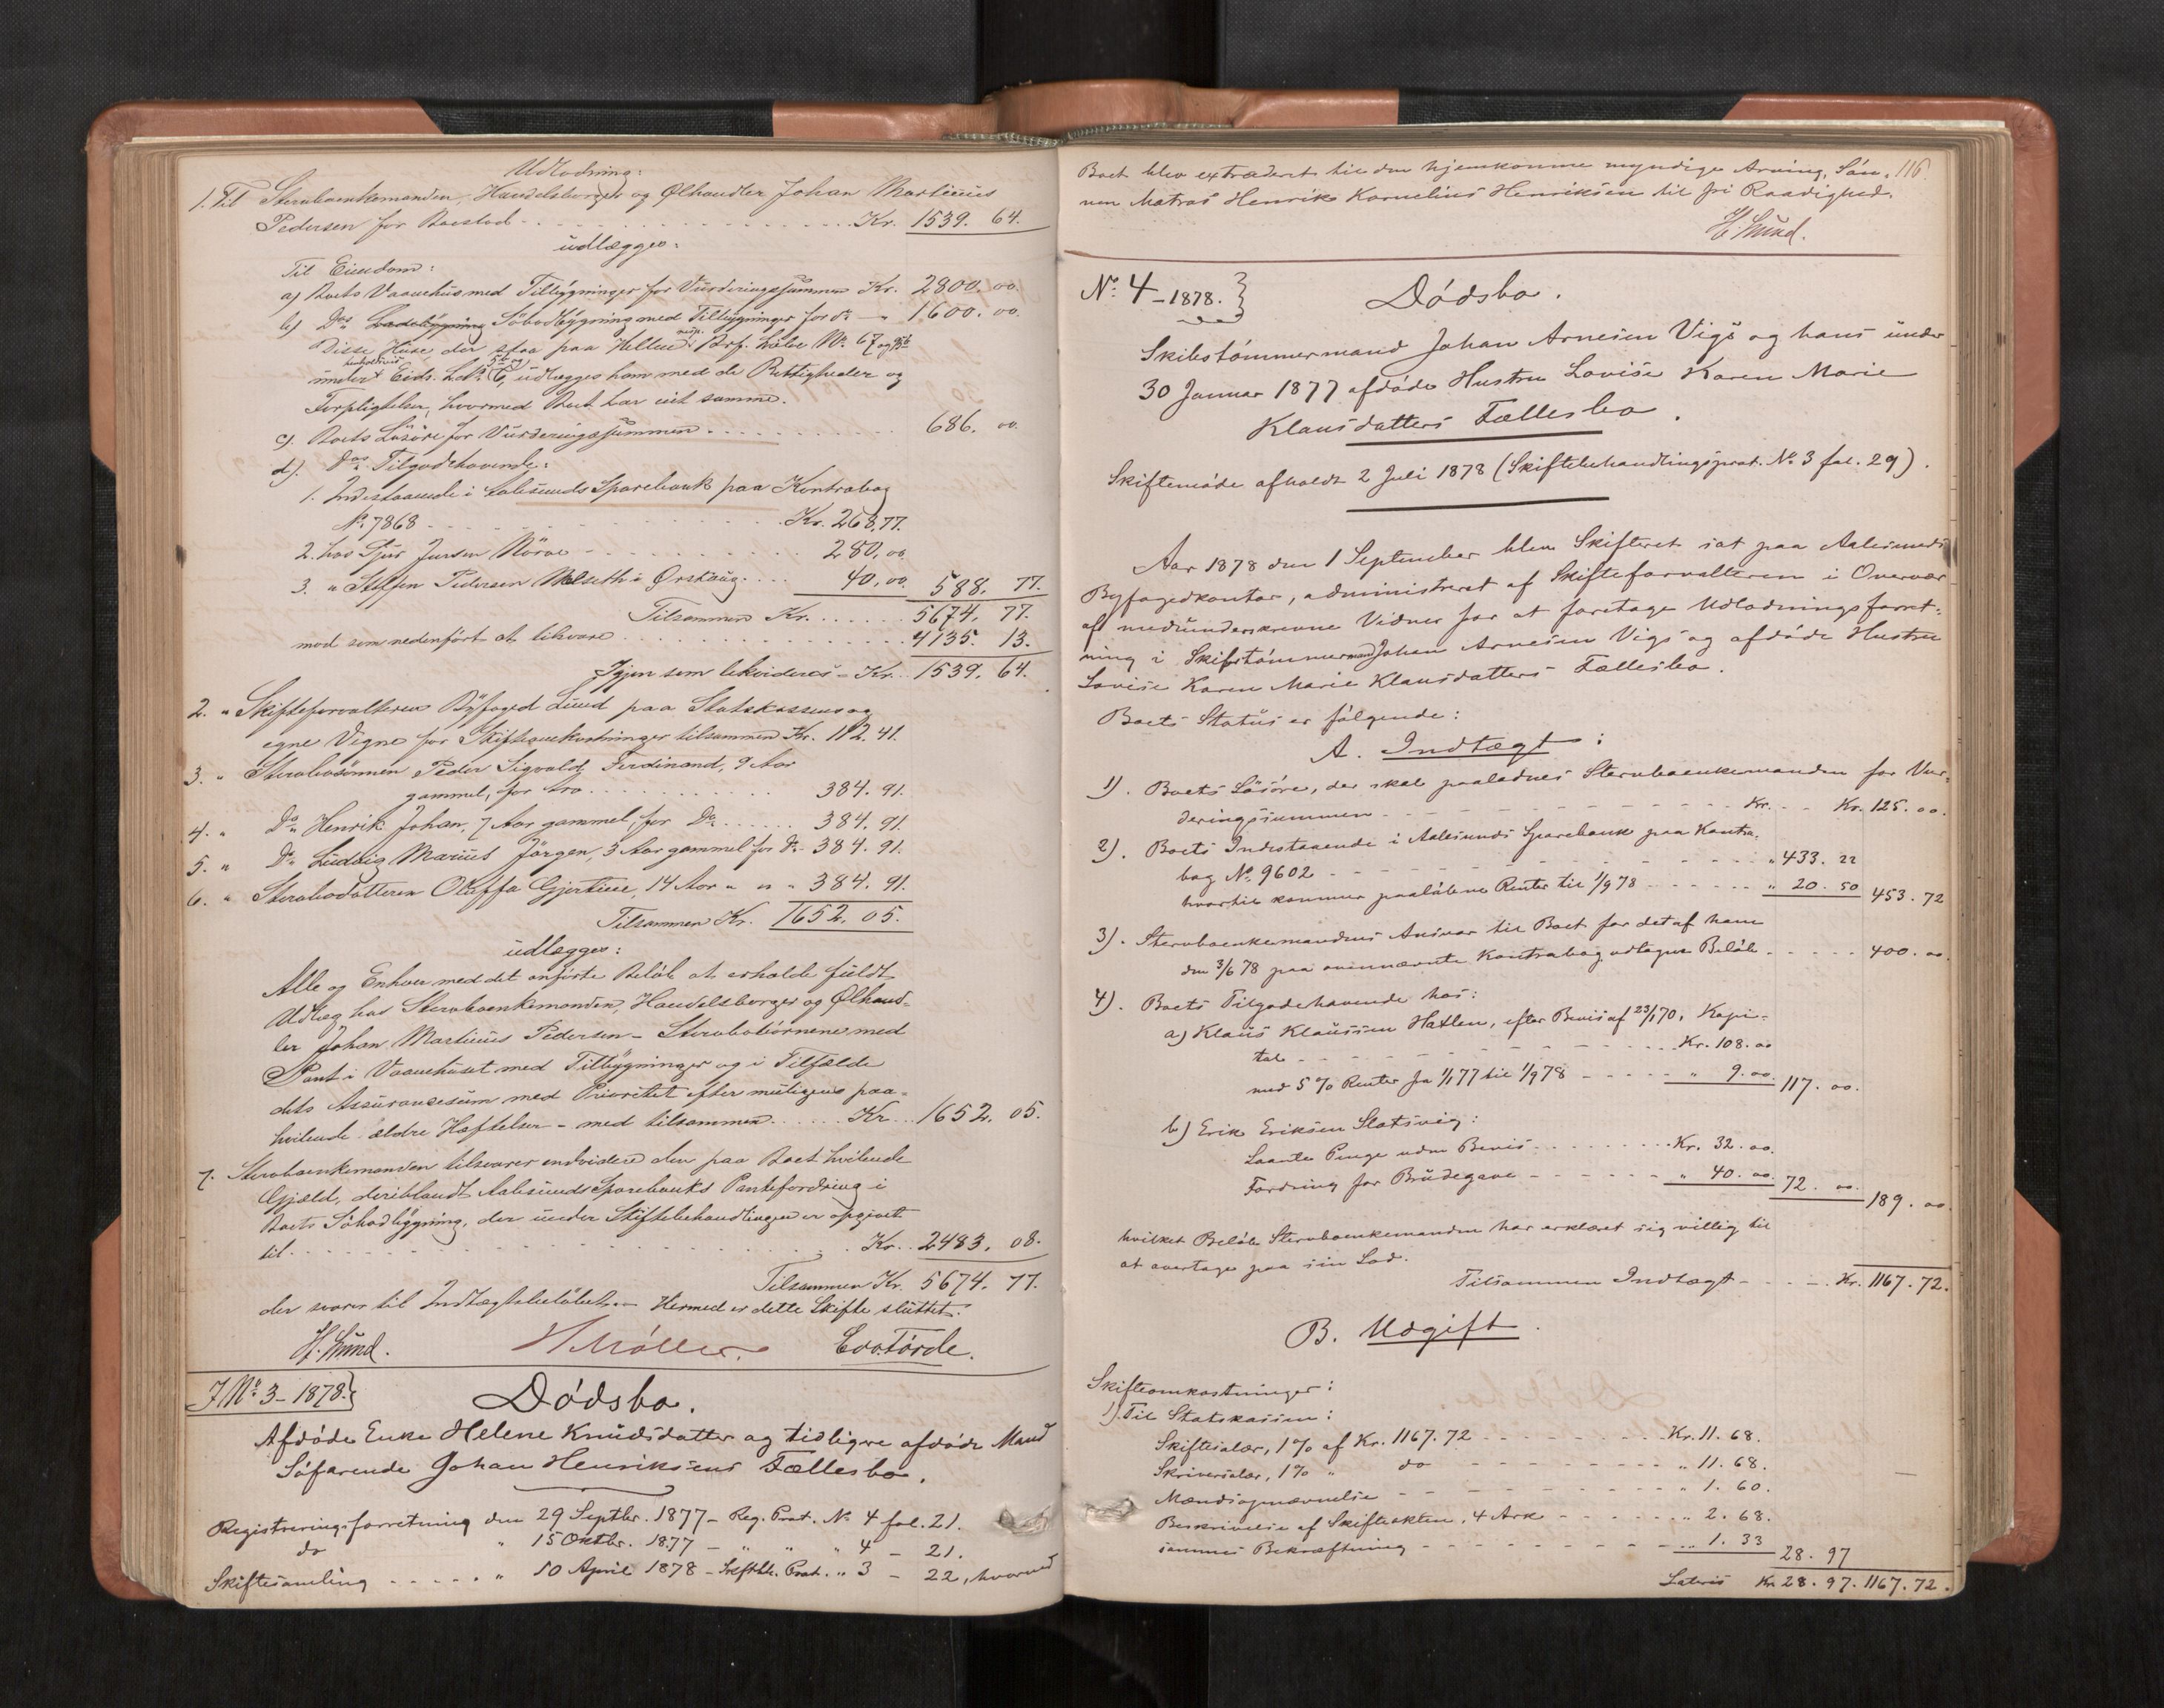 Udlodning:
1. Til Sterboenkemanden, Handelsborger og Ølhandler Johan Martinus
Pedersen for Boeslod - . . . . Kr. 1539. 64.
udlægges:
Til Eiendom:
a) Boets Vaanehus med Tilbÿgninger for Vurderingssummen Kr. 2800. 00.
b) Dos Ladebÿgning Söbodbÿgning med Tilbÿgninger for do — " 1600. 00.
Disse Huse der staa paa Hellen resp. Brf. Löbe No. 67 og
under Eids. Lit. 5b og 6, udlægges ham med de Rettigheder og
Forpligtelser, hvormed Boet har eiet samme.
c). Boets Lösöre for Vurderingssummen . . . . 686. 00
d). Dos Tilgodehavende:
1. Indestaaende i Aalesunds Sparebank paa Kontrabog
No. 7868 - - - - - Kr. 268,77.
2. hos Sjur Jensen Nörve - . . . . 280,00
3. " Steffen Pedersen Welseth i Ørskoug . . . . 40,00 588. 77.
Tilsammen Kr. . . . . 5674. 77.
mod som nedenfört at tilsvare . . . . 4135. 13.
Igjen som likvideres - Kr. 1539. 64.
2. " Skifteforvalteren Bÿfoged Lund paa Statskassens og
egne Vegne for Skifteomkostninger tilsammen Kr. 112. 41.
3. " Sterbosönnen Peder Sigvald Ferdinand, 9 Aar
gammel, for Arv . . . . 384. 91.
4. " Do " Henrik Johan, 7 Aar gammel, for Do . . . . 384. 91.
5. " Do " Ludvig Marius Jörgen, 3 Aar gammel for Do - 384. 91.
6. " Sterbodatteren Oluffa Gjertine, 14 Aar " " " 384. 91.
Tilsammen Kr. 1652. 05.
udlægges:
Alle og Enhver med det anförte Belöb at erholde fuldt
Udlæg hos Sterboenkemanden, Handelsborger og Ølhand-
ler Johan Martinus Pedersen - Sterbobörnene med
Pant i Vaanehuset med Tilbÿgninger og i Tilfælde
dets Assurancesum med Prioritet efter muligens paa-
hvilende ældre Hæftelser - med tilsammen . . . . Kr. . . 1652. 05.
7. Sterboenkemanden tilsvarer endvidere den paa Boet hvilende
Gjæld, deriblandt Aalesunds Sparebanks Pantefordring i
Boets Söbodbÿgning, der under Skiftebehandlingen er opgivet
til . . . . Kr. . 2483. 08.
Tilsammen Kr. 5674. 77.
der svarer til Indtægtsbelöbet. — Hermed er dette Skifte sluttet.
H. Lund. HMöller. Edv. Törde.
J No. 3 - 1878.
Dödsbo.
Afdöde Enke Helene Knudsdatter og tidligere afdöde Mand
Söfarende Johan Henriksens Fællesbo.
Registreringsforretning den 29 Septbr. 1877 - Reg. Prot. No. 4 fol. 21.
do " 15 Oktbr. 1877 — " " " 4 — 21.
Skiftesamling - - - - - " 10 April 1878 - Skftbh. Prot. " 3 — 22, hvorved
116
Boet blev extraderet til den hjemkomne myndige Arving, Sön-
nen Matros Henrik Kornelius Henriksen til fri Raadighed.
H Lund.
No. 4 - 1878.
Dödsbo.
Skibstömmermand Johan Arnesen Vigs og hans under
30 Januar 1877 afdöde Hustru Lovise Karen Marie
Klausdatters Fællesbo.
Skiftemöde afholdt 2 Juli 1878 (Skiftebehandlingsprot. No. 3 fol. 29).
Aar 1878 den 1 September blev Skifteret sat paa Aalesunds
Byfogedkontor, administreret af Skifteforvalteren i Overvær
af medunderskrevne Vidner for at foretage Udlodningsforret-
ning i Skibstömmermand Johan Arnesen Vigs og afdöde Hustru
Lovise Karen Marie Klausdatters Fællesbo.
Boets Status er fölgende:
A. Indtægt:
1). Boets Lösöre, der skal paalodnes Sterboenkemanden for Vur-
deringssummen - - - - - Kr. - - Kr. 125. 00.
2). Boets Indestaaende i Aalesunds Sparebank paa Kontra-
bog No. 9602 - - - - - " 433. 22
hvortil kommer paalöbne Renter til 1/9 78 - - - - - " 20. 50 453. 72
3). Sterboenkemandens Ansvar til Boet for det af ham
den 3/6 78 paa ovennævnte Kontrabog udtagne Belöb - - - - - 400. 00
4). Boets Tilgodehavende hos:
a) Klaus Klaussen Hatlen, efter Bevis af 23/1 70, Kapi-
tal - - - - - Kr. 108. 00
med 5 % Renter fra 1/1 77 til 1/9 78 - - - - - " 9. 00. 117. 00.
b) Erik Eriksen Slatsvig:
Laante Penge uden Bevis - - - - - Kr. 32. 00.
Fordring for Brudegave - - - - - " 40. 00. 72. 00. 189. 00.
hvilket Belöb Sterboenkemanden har erklæret sig villig til
at overtage paa sin Lod.
Tilsammen Indtægt - - - - - Kr. 1167. 72.
B. Udgift.
Skifteomkostninger:
1). Til Statskassen:
Skiftesalær, 1 % af Kr. 1167. 72 - - - - - Kr. 11. 68.
Skriversalær, 1 % " do - - - - - " 11. 68.
Mændsopnævnelse - - - - - " 1. 60.
Beskrivelse af Skifteakten, 4 Ark - - - - - " 2. 68.
sammes Bekræftning - - - - - " 1. 33 28. 97
Lateris Kr. 28. 97. 1167. 72.